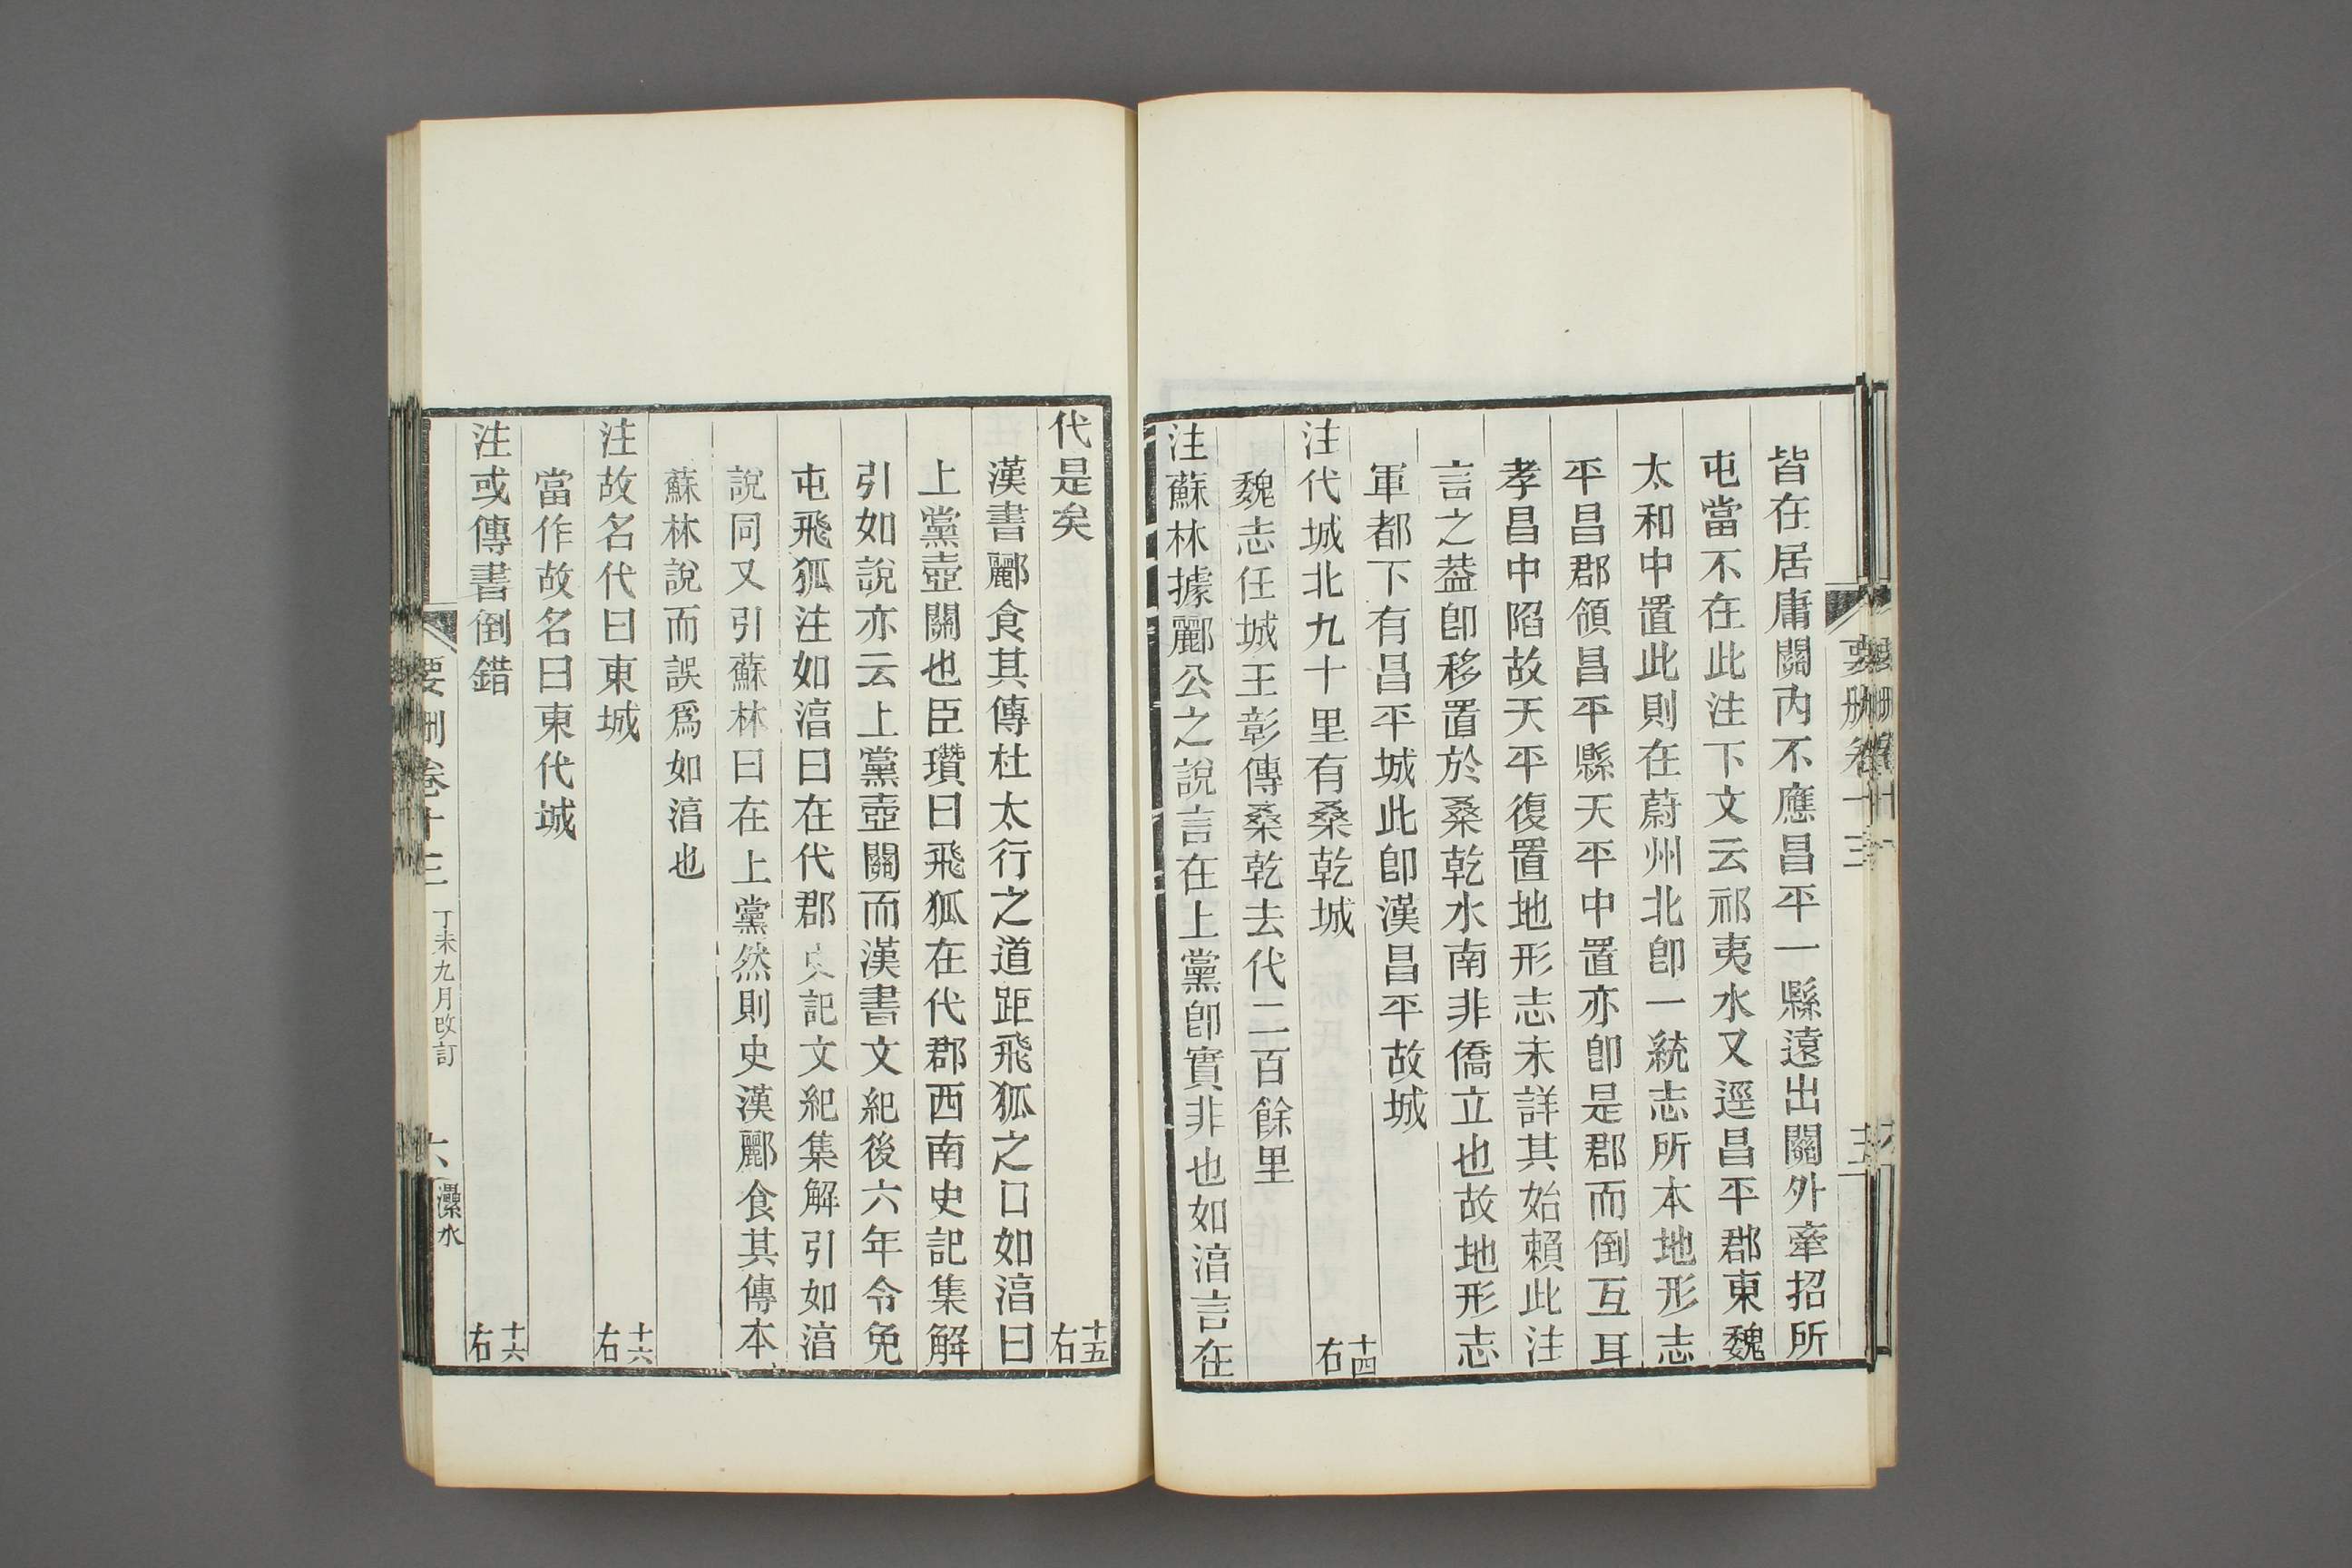 皆在居庸關內不應昌平一縣遠出關外牽招所
屯當不在此注下文云祁夷水又逕昌平郡東魏
太和中置此則在蔚州北卽一統志所本地形志
平昌郡領昌平縣天平中置亦卽是郡而倒互耳
孝昌中陷故天平復置地形志未詳其始賴此注
言之葢卽移置於桑乾水南非僑立也故地形志
軍都下有昌平城此卽漢昌平故城
注代城北九十里有桑乾城 十四右
魏志任城王彰傳桑乾去代二百餘里
注蘇林據酈公之說言在上黨卽實非也如淊言在
代是矣 十五右
漢書酈食其傳杜太行之道距飛狐之口如淊曰
上黨壺關也臣瓚曰飛狐在代郡西南史記集解
引如說亦云上黨壺關而漢書文紀後六年令免
屯飛狐注如淊曰在代郡史記文紀集解引如淊
說同又引蘇林曰在上黨然則史漢酈食其傳本
蘇林說而誤爲如淊也
注故名代曰東城 十六右
當作故名曰東代城
注或傳書倒錯 十六右
要刪卷十三 丁未九月改訂 六 灅水